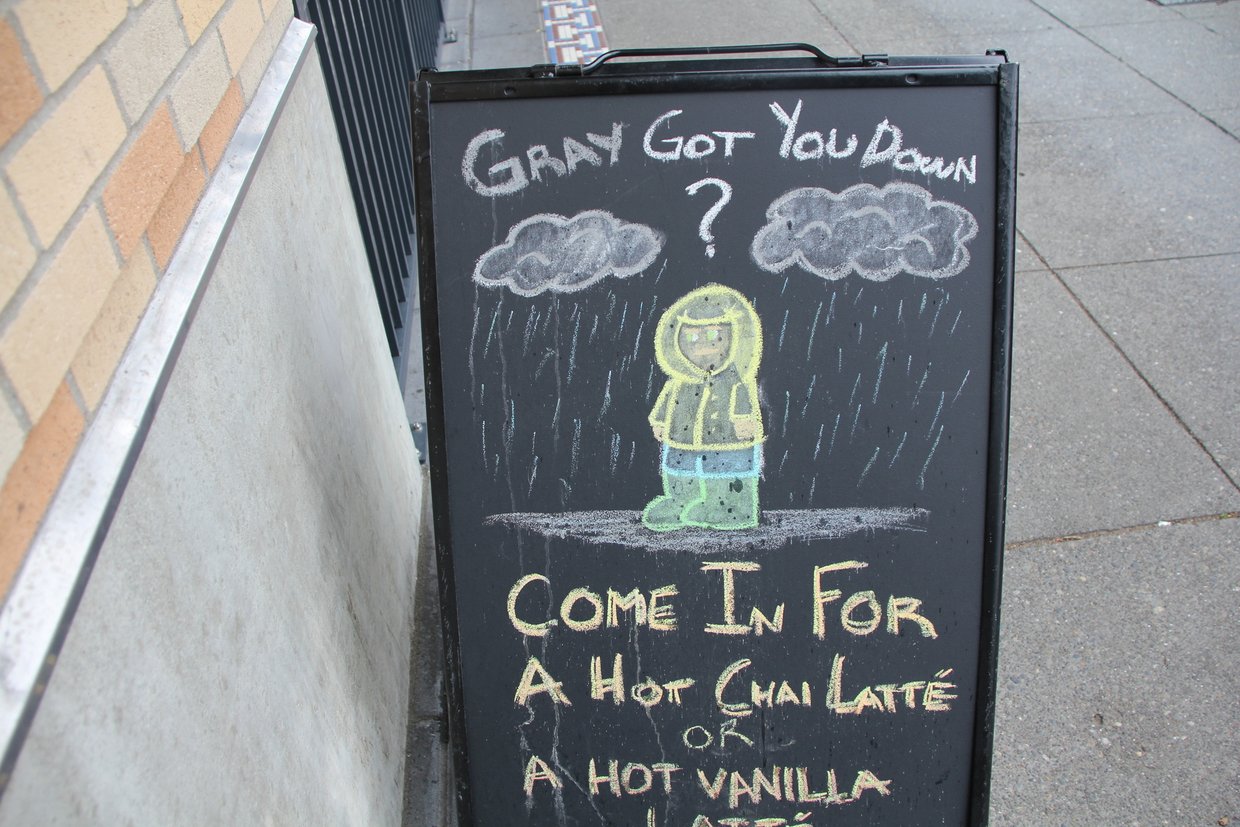 GRAY GOT YOU DOWN
?
COME IN FOR
A HOT CHAI LATTÉ
OR
A HOT VANILLA
LATTÉ